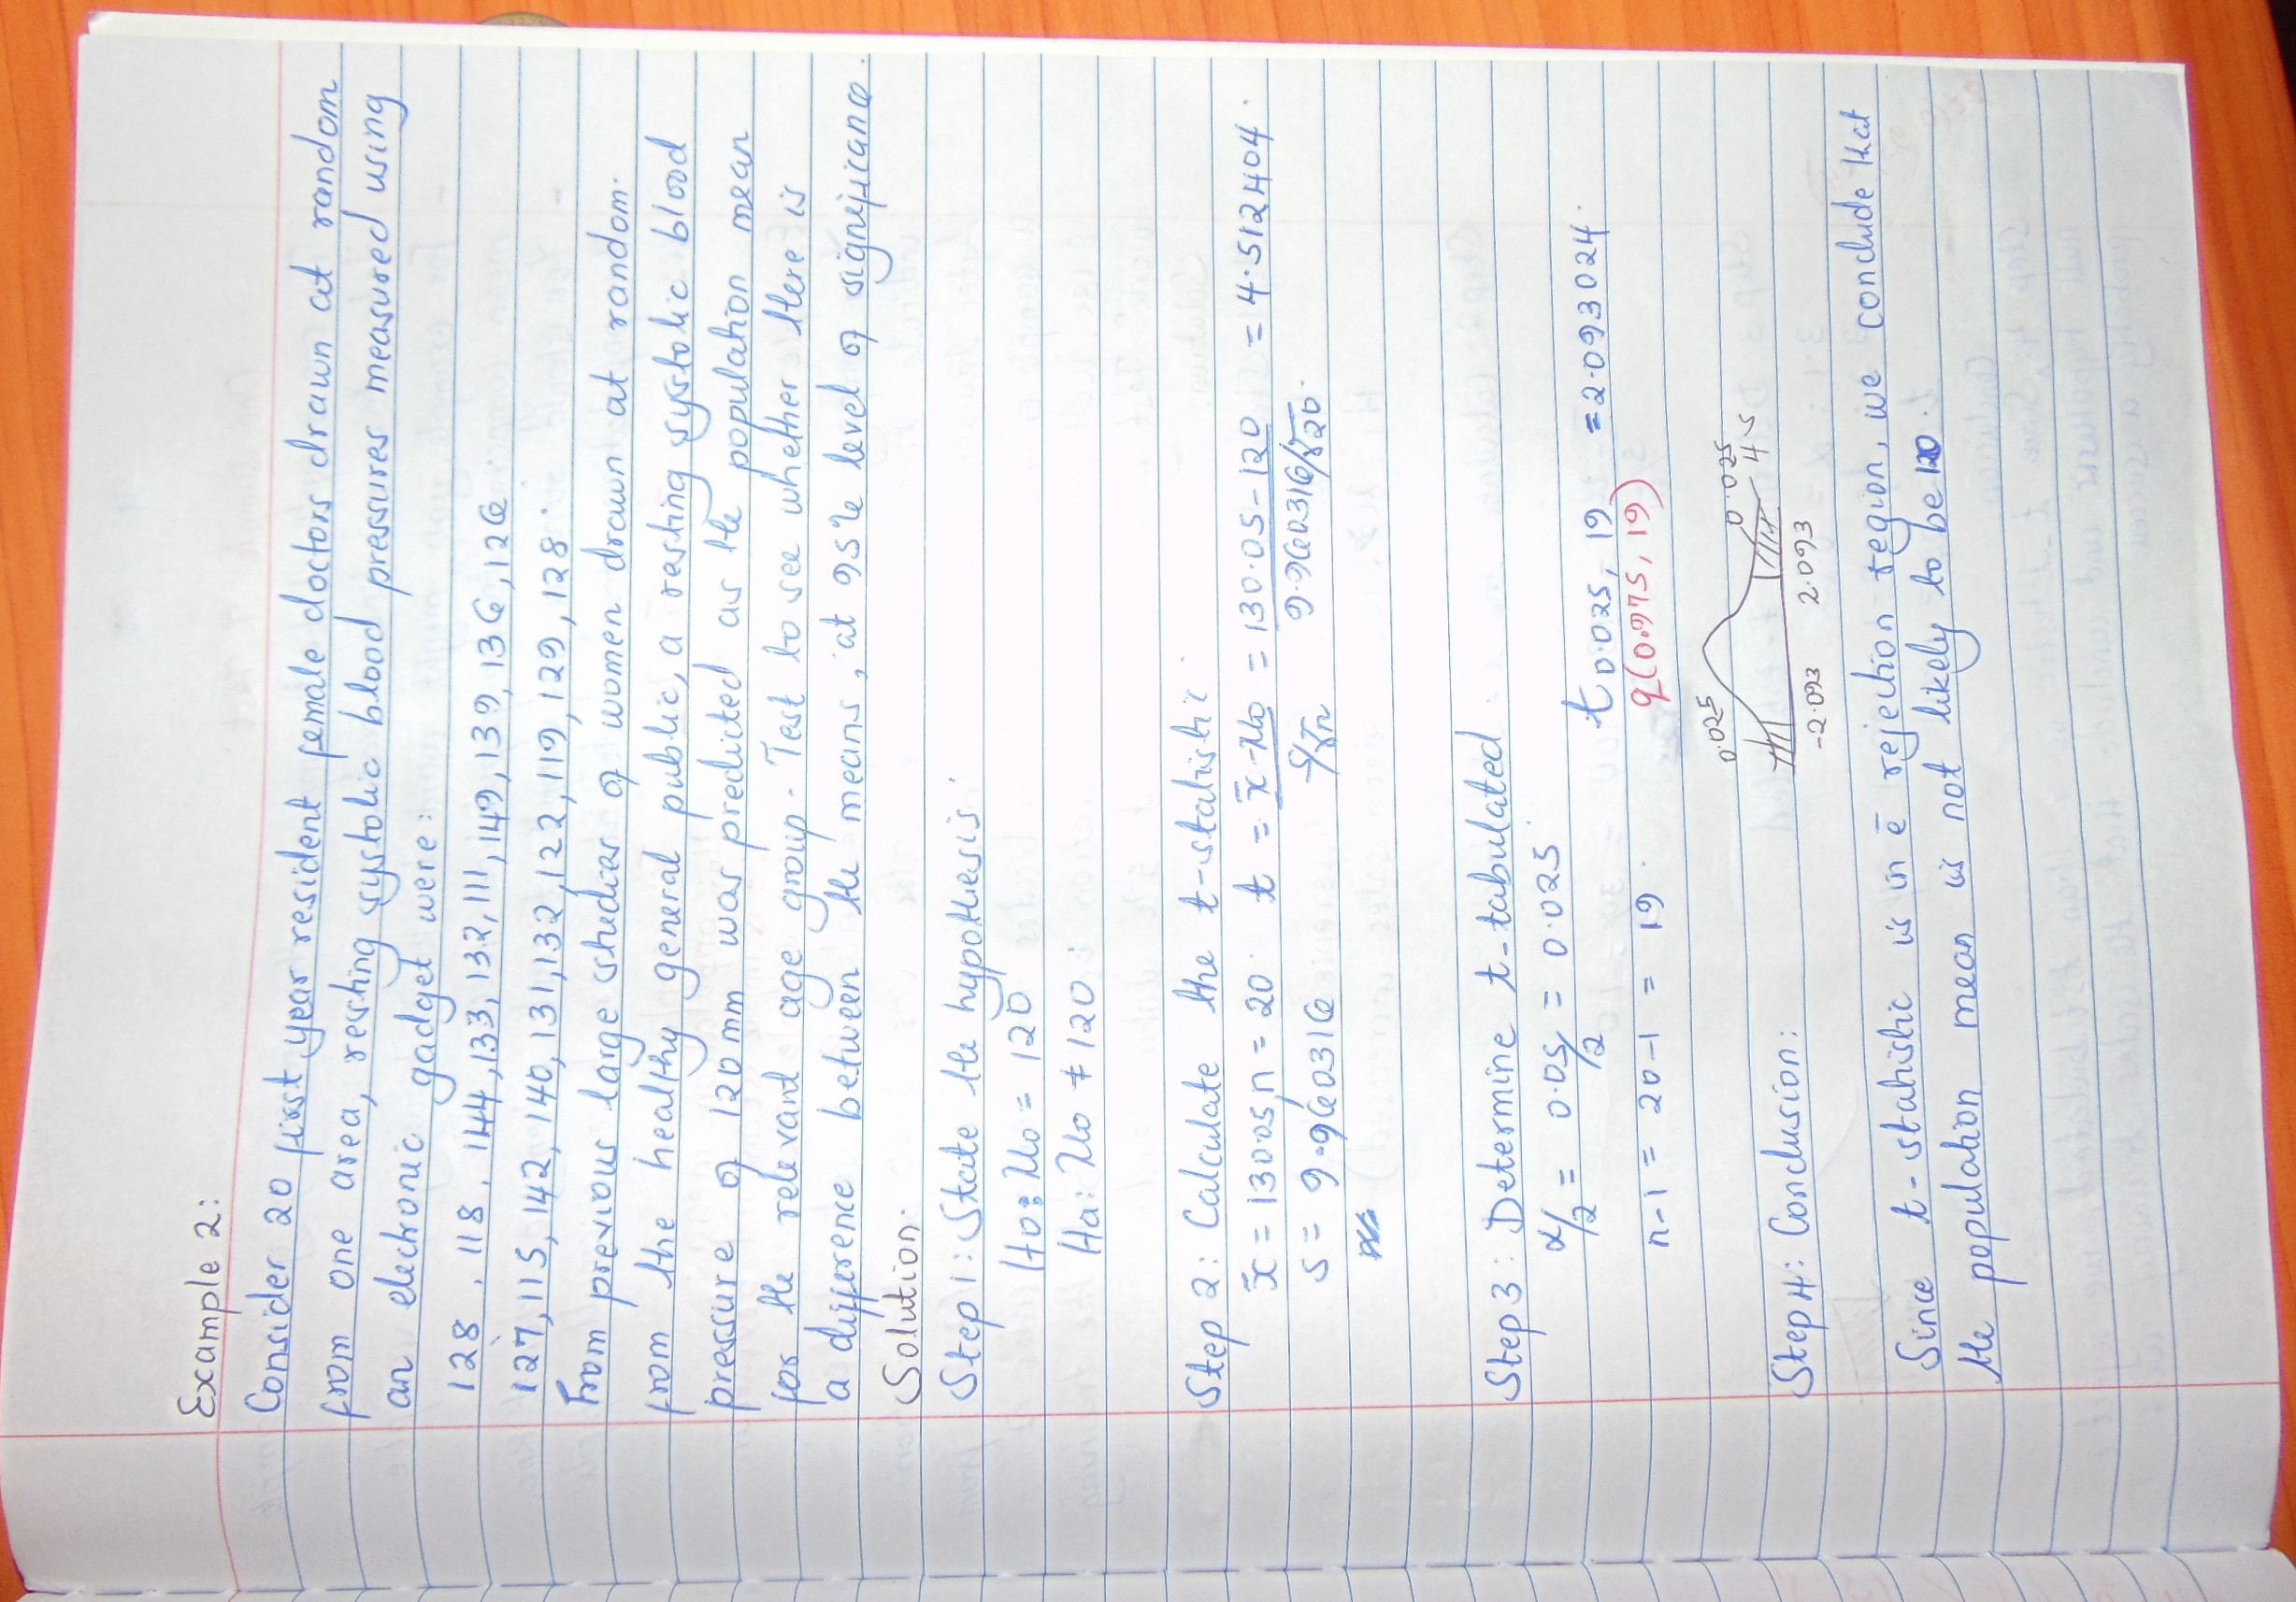 Example 2:
Consider 20 first year resident female doctors drawn at random
from one area, resting systolic blood pressures measured using
an electronic gadget were:
128, 118, 144, 133, 132, 111, 149, 139, 136, 126
127, 115, 142, 140, 131, 132, 122, 119, 129, 128.
From previous large studies of women drawn at random.
from the healthy general public, a resting systolic blood
pressure of 120 mm was predicted as the population mean
for the relevant age group. Test to see whether there is
a difference between the means, at 95% level of significance.
Solution.
Step 1: State the hypothesis
H0: μ0 = 120
Ha: μ0 ≠ 120
Step 2: Calculate the t-statistic
x̄ = 130.05, n = 20 t = x̄-μ0 / s/√n = 130.05 - 120 / 9.960316/√20 = 4.512404.
s = 9.960316
Step 3: Determine t-tabulated
α/2 = 0.05/2 = 0.025
t 0.025, 19 = 2.093024.
n-1 = 20-1 = 19
q(0.975, 19)
0.025 0.025
4.5
Step 4: Conclusion:
-2.093 2.093
Since t-statistic is in ē rejection region, we conclude that
the population mean is not likely to be 120.